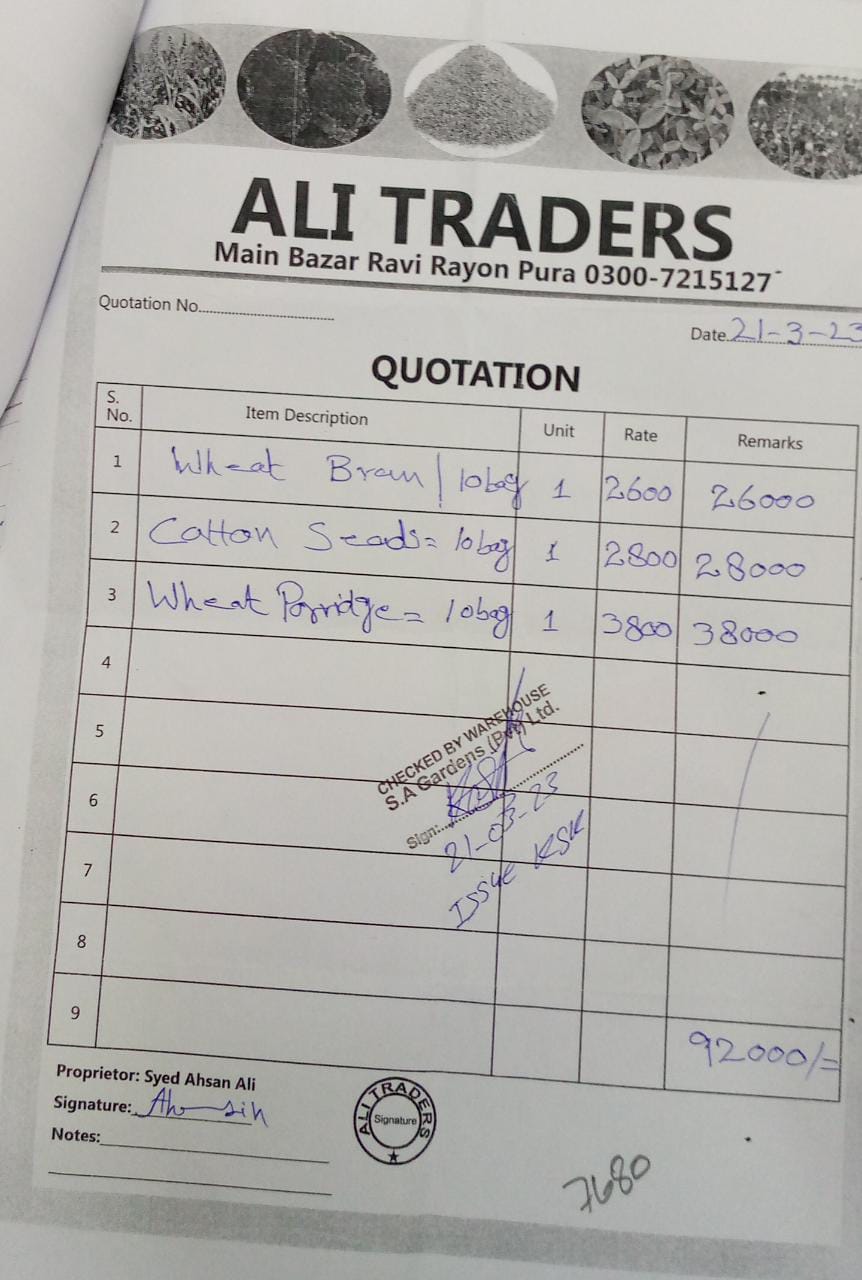 ALI TRADERS
Main Bazar Ravi Rayon Pura 0300-7215127
Quotation No.
Date 21-3-23
QUOTATION
S. No. Item Description Unit Rate Remarks
1 Wheat Bran | 10bag 1 2600 26000
2 Catton Seads = 10bag 1 2800 28000
3 Wheat Porridge = 10bag 1 3800 38000
4
5
CHECKED BY WAREHOUSE
S.A Gardens (Pvt) Ltd.
6
Sign:
21-03-23
7
Issue KSK
8
9 92000/=
Proprietor: Syed Ahsan Ali
Signature: Ahsin
Notes:
ALI TRADERS
Signature
7680